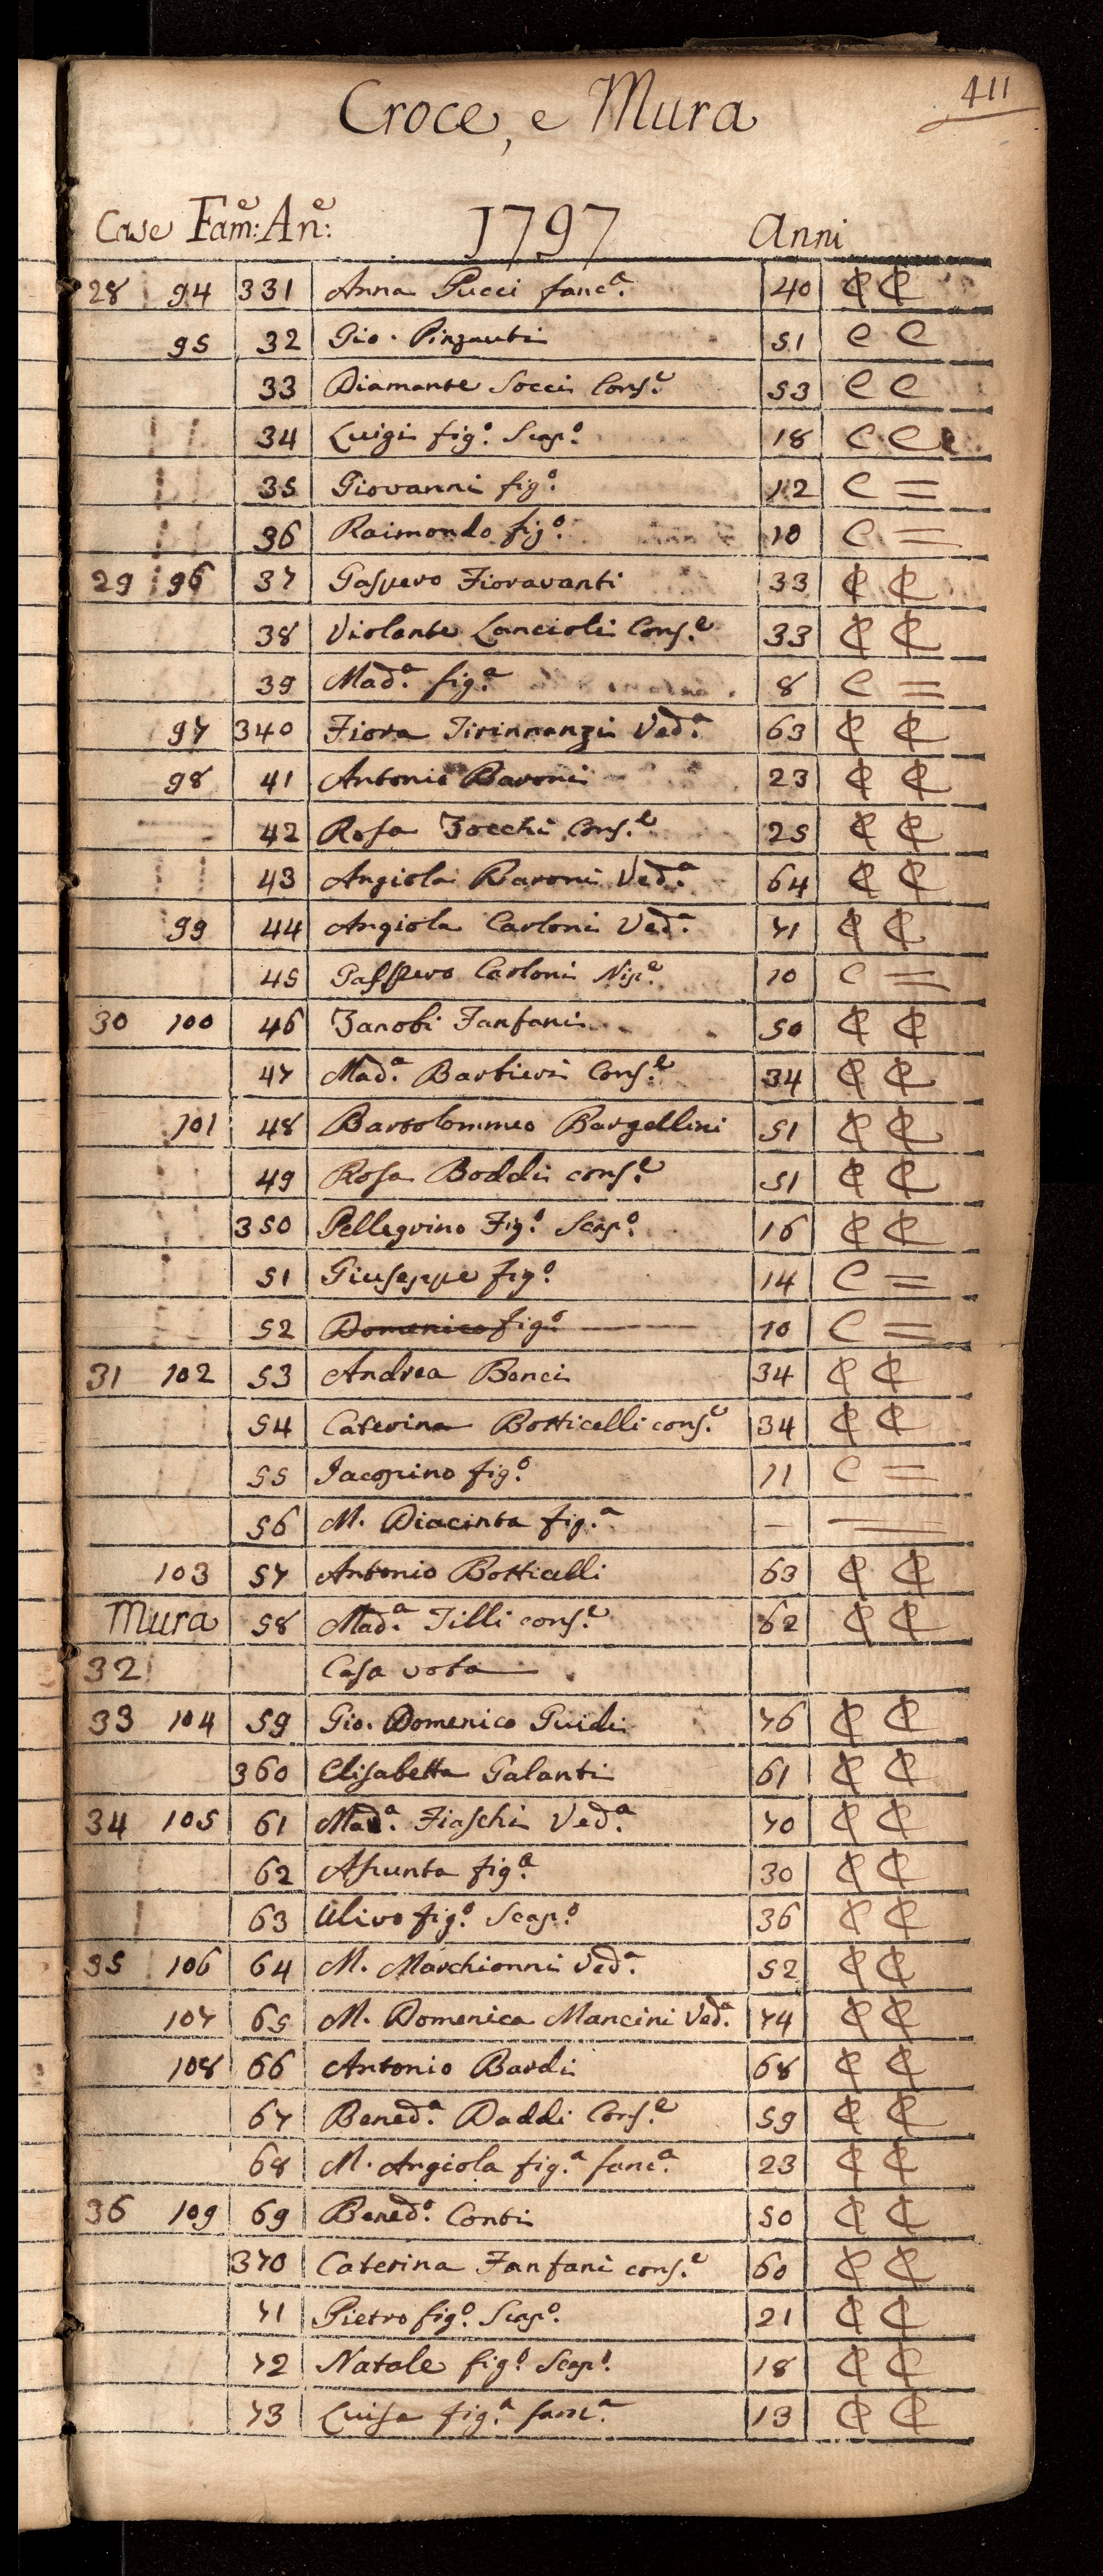 411
Croce, e Mura
Case Fam:e An:e 1797 Anni
28 94 331 Anna Pucci fanc.a 40 ₵ ₵
95 32 Gio. Pinzauti 51 C C
33 Diamante Socci Cons.e 53 C C
34 Luigi fig.o Scap.o 18 C C
35 Giovanni fig.o 12 C =
36 Raimondo fig.o 10 C =
29 96 37 Gaspero Fioravanti 33 ₵ ₵
38 Violante Lancioli Cons.e 33 ₵ ₵
39 Mad.a fig.a 8 C =
97 340 Fiora Tirinnanzi Ved.a 63 ₵ ₵
98 41 Antonio Baroni 23 ₵ ₵
42 Rosa Zocchi Cons.e 25 ₵ ₵
43 Angiola Baroni Ved.a 64 ₵ ₵
99 44 Angiola Carloni Ved.a 71 ₵ ₵
45 Gasspero Carloni Nip.e 10 C =
30 100 46 Zanobi Fanfani 50 ₵ ₵
47 Mad.a Barbieri Cons.e 34 ₵ ₵
101 48 Bartolommeo Bargellini 51 ₵ ₵
49 Rosa Boddi cons.e 51 ₵ ₵
350 Pellegrino Fig.o Scap.o 16 ₵ ₵
51 Giuseppe fig.o 14 C =
52 Domenico fig.o 10 C =
31 102 53 Andrea Bonci 34 ₵ ₵
54 Caterina Botticelli cons.e 34 ₵ ₵
55 Iacopino fig.o 11 C =
56 M. Diacinta fig.a —
103 57 Antonio Botticelli 63 ₵ ₵
Mura 58 Mad.a Tilli cons.e 62 ₵ ₵
32 Casa vota
33 104 59 Gio. Domenico Guidi 76 ₵ ₵
360 Elisabetta Galanti 61 ₵ ₵
34 105 61 Mad.a Fiaschi Ved.a 70 ₵ ₵
62 Assunta fig.a 30 ₵ ₵
63 Ulivo fig.o Scap.o 36 ₵ ₵
35 106 64 M. Marchionni Ved.a 52 ₵ ₵
107 65 M. Domenica Mancini Ved.a 74 ₵ ₵
108 66 Antonio Bardi 68 ₵ ₵
67 Bened.a Daddi Cons.e 59 ₵ ₵
68 M. Angiola fig.a fanc.a 23 ₵ ₵
36 109 69 Bened.o Conti 50 ₵ ₵
370 Caterina Fanfani cons.e 60 ₵ ₵
71 Pietro fig.o Scap.o 21 ₵ ₵
72 Natale fig.o Scap.o 18 ₵ ₵
73 Luisa fig.a fanc.a 13 ₵ ₵